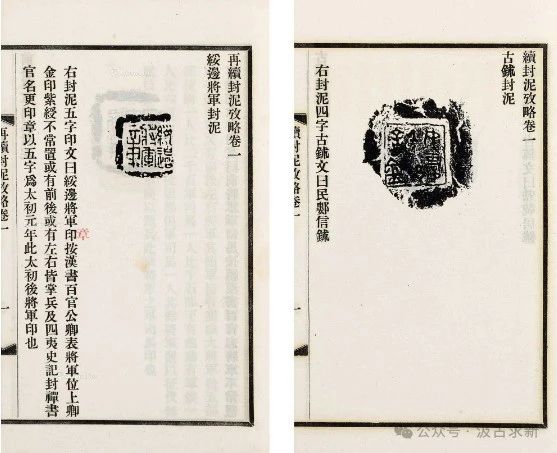 再續封泥攷略卷一
綏邊將軍封泥
右封泥五字印文曰綏邊將軍印章按漢書百官公卿表將軍位上卿
金印紫綬不常置或有前後或有左右皆掌兵及四夷史記封禪書
官名更印章以五字爲太初元年此太初後將軍印也
再續封泥攷略卷一
一
續封泥攷略卷一
古鉨封泥
右封泥四字古鉨文曰民信鉨
續封泥攷略卷一
公众号·汲古求新